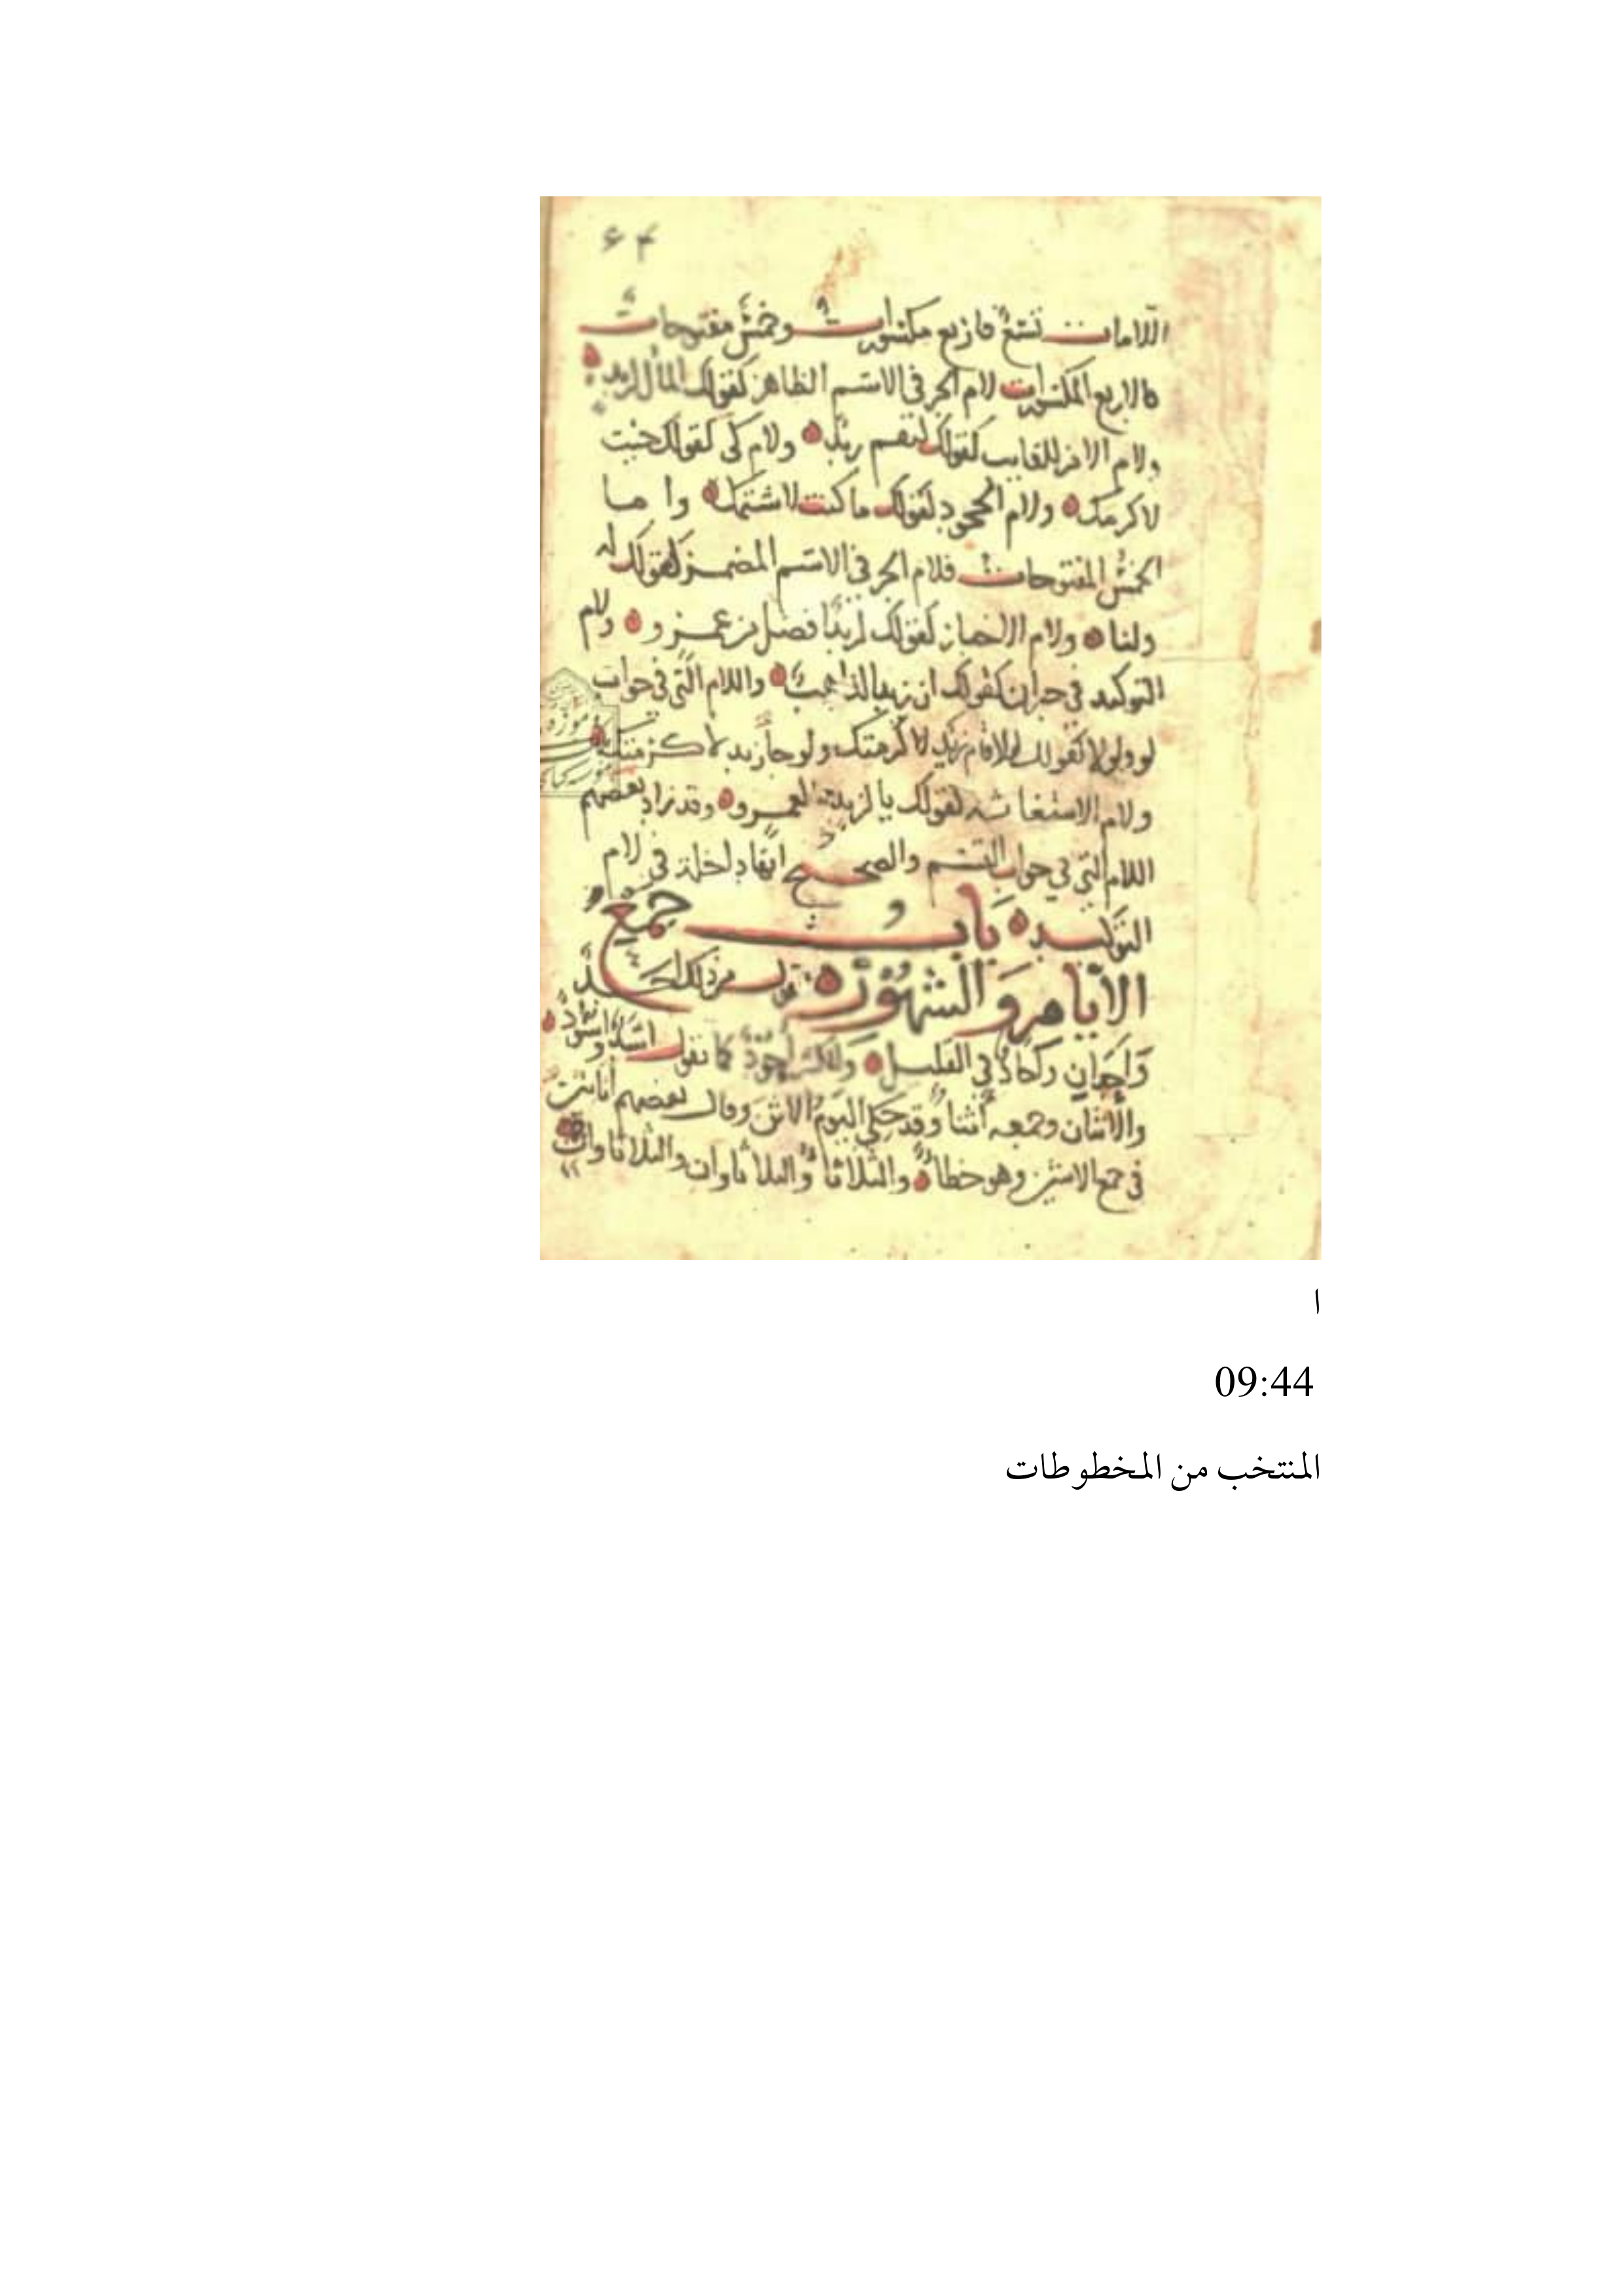 ٦٣
اللامات تسع فاربع مكسورات وخمس مفتوحات
فالاربع المكسورات لام الجر فى الاسم الظاهر كقولك المال لزيد
ولام الامر للغايب كقولك ليقم زيد ولام كى كقولك جئت
لاكرمك ولام الجحود كقولك ما كنت لاشتمك واما
الخمس المفتوحات فلام الجر فى الاسم المضمر كقولك له
ولنا ولام الابتداء كقولك لزيد افضل من عمرو ولام
التوكيد فى خبر ان كقولك ان زيدا لذاهب واللام التى فى جواب
لو ولولا كقولك لولا قام زيد لاكرمتك ولو جا زيد لاكرمتك
ولام الاستغاثة كقولك يا لزيد لعمرو وقد زاد بعضهم
اللام التى فى جواب القسم والصحيح انها داخلة فى لام
التوكيد باب جمع
الايام والشهور تقول من ذلك احد
واحدان وكذا فى القليل والكثير كما تقول اسد واسود
والاثنان وجمعه اثنا وقد حكى اليوم الاثن وقال بعضهم اثانين
فى جمع الاثنين وهو خطا والثلاثا والثلاثاوان والثلاثاوات
ا
09:44
المنتخب من المخطوطات